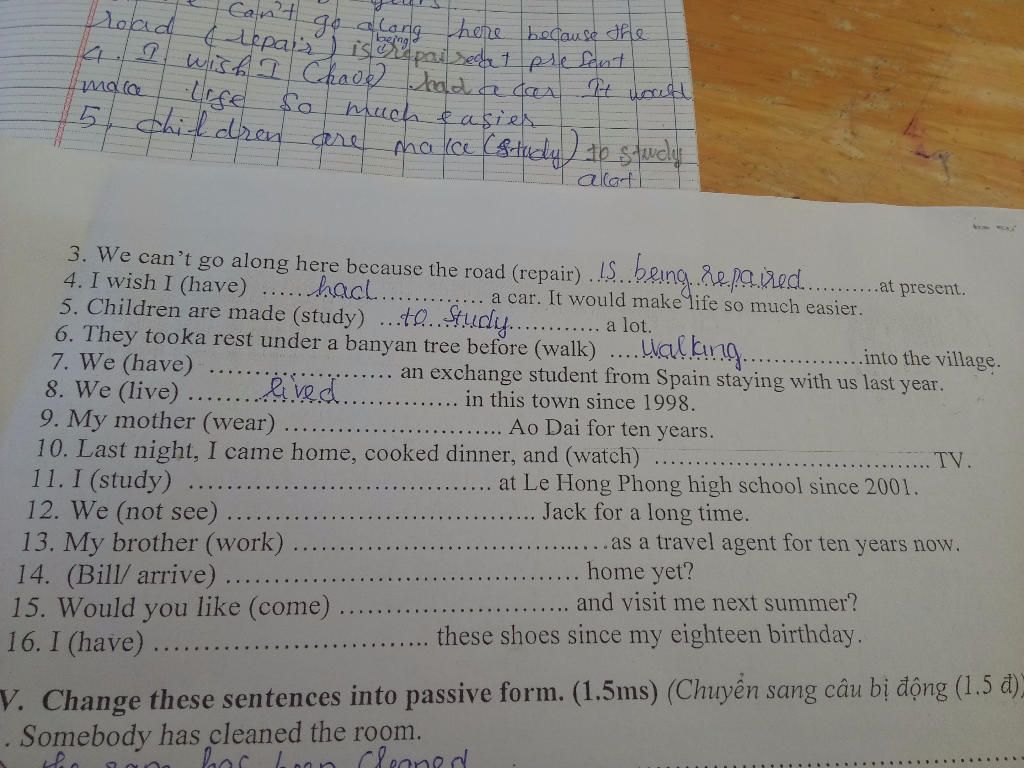 can't go along here because the
road (repair) is being repaired at present
4. I wish I (have) had a car It would
make life so much easier
5, children are make (study) to study
a lot
3. We can't go along here because the road (repair) ..is being repaired...........at present.
4. I wish I (have) ......had.............. a car. It would make life so much easier.
5. Children are made (study) ...to study............ a lot.
6. They tooka rest under a banyan tree before (walk) ....walking................into the village.
7. We (have) ........................ an exchange student from Spain staying with us last year.
8. We (live) .........lived............... in this town since 1998.
9. My mother (wear) ............................ Ao Dai for ten years.
10. Last night, I came home, cooked dinner, and (watch) .................................... TV.
11. I (study) ....................................... at Le Hong Phong high school since 2001.
12. We (not see) ....................................... Jack for a long time.
13. My brother (work) ........................................as a travel agent for ten years now.
14. (Bill/ arrive) ............................................ home yet?
15. Would you like (come) ............................. and visit me next summer?
16. I (have) .................................. these shoes since my eighteen birthday.
V. Change these sentences into passive form. (1.5ms) (Chuyển sang câu bị động (1.5 đ))
. Somebody has cleaned the room.
has been cleaned